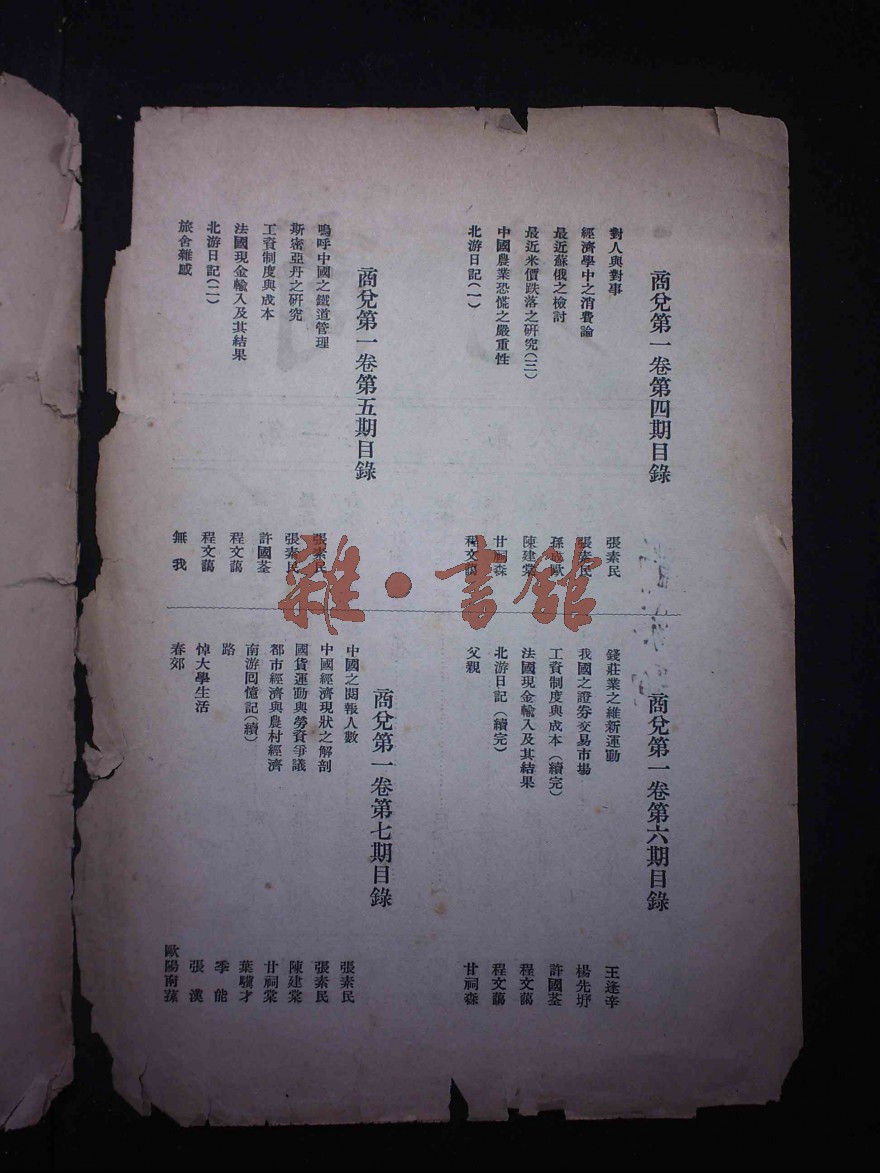 商兌第一卷第四期目錄
對人與對事 張素民
經濟學中之消費論 張素民
最近蘇俄之檢討
最近米價跌落之研究(三) 陳建棠
中國農業恐慌之嚴重性 甘祠森
北游日記(一) 程文藹
商兌第一卷第五期目錄
嗚呼中國之鐵道管理 張素民
斯密亞丹之研究 張素民
工資制度與成本 許國荃
法國現金輸入及其結果 程文藹
北游日記(二) 程文藹
旅舍雜感 無我
商兌第一卷第六期目錄
錢莊業之維新運動 王逢辛
我國之證券交易市場 楊先垿
工資制度與成本(續完) 許國荃
法國現金輸入及其結果 程文藹
北游日記(續完) 程文藹
父親 甘祠森
商兌第一卷第七期目錄
中國之閱報人數 張素民
中國經濟現狀之解剖 張素民
國貨運動與勞資爭議 陳建棠
都市經濟與農村經濟 甘祠棠
南游囘憶記(續) 葉驥才
路 季能
悼大學生活 張漢
春郊 歐陽南蓀
雜·書館